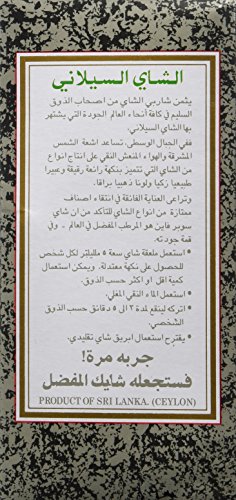 الشاي السيلاني
يثمن شاربي الشاي من اصحاب الذوق
السليم في كافة أنحاء العالم الجودة التي يشتهر
بها الشاي السيلاني.
ففي الجبال الوسطى، تساعد اشعة الشمس
المشرقة والهواء المنعش النقي على انتاج انواع
من الشاي التي تتميز بنكهة رائعة وعطرا
طبيعيا زكيا ولونا ذهبيا براقا.
وتراعى العناية الفائقة في انتقاء اصناف
ممتازة من انواع الشاي للتأكد من ان شاي
سوبر فاين هو المرطب المفضل في العالم - وفي
قمة جودته.
• استعمل ملعقة شاي سعة ٥ ملليلتر لكل شخص
للحصول على نكهة معتدلة. ويمكن استعمال
كمية اقل او اكثر حسب الذوق.
• استعمل الماء النقي المغلي.
• اتركه لينقع لمدة ٣ الى ٥ دقائق حسب الذوق
الشخصي.
• يقترح استعمال ابريق شاي تقليدي.
جربه مرة!
فستجعله شايك المفضل
PRODUCT OF SRI LANKA. (CEYLON)